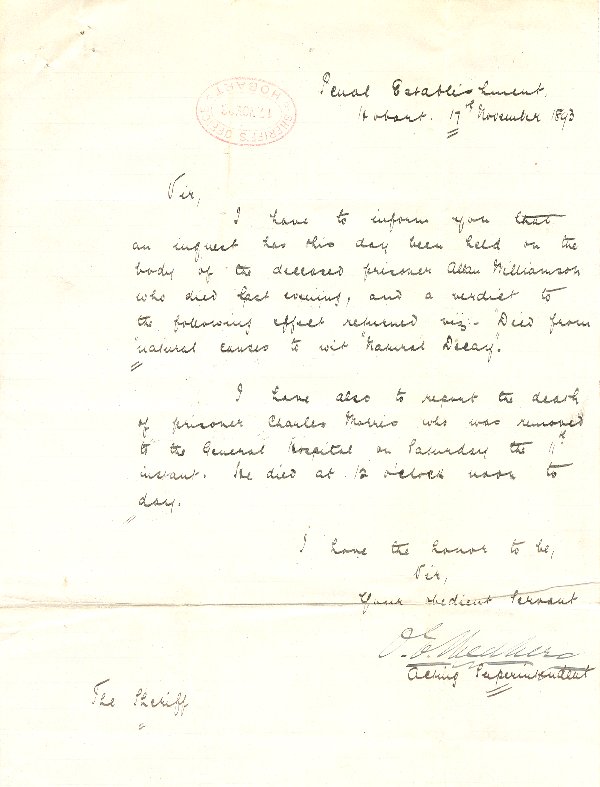 Penal Establishment,
Hobart. 17th November 1893
SHERIFF'S OFFICE
HOBART
Sir,
I have to inform you that
an inquest has this day been held on the
body of the deceased prisoner Allan Williamson
who died last evening, and a verdict to
the following effect returned viz - "Died from
natural causes to wit "Natural Decay".
I have also to report the death
of prisoner Charles Morris who was removed
to the General Hospital on Saturday the 11th
instant. He died at 12 o'clock noon to
day.
I have the honor to be,
Sir,
Your obedient Servant
Acting Superintendent
The Sheriff